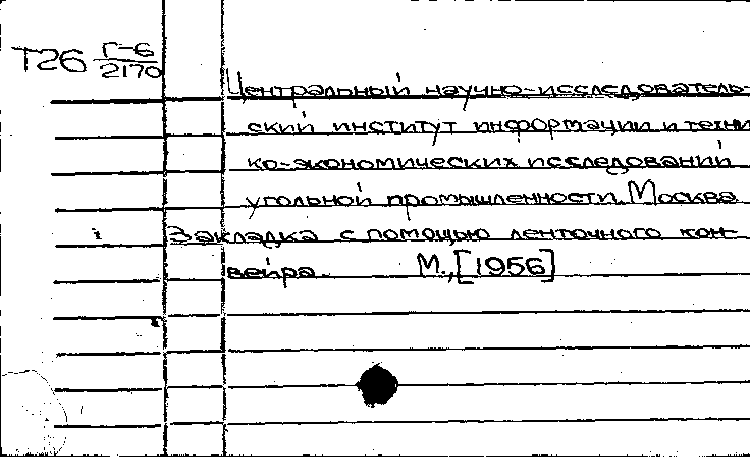 Т26 Г-6/2170
Центральный научно-исследователь-
ский институт информации и техни
ко-экономических исследований
угольной промышленности. Москва
Закладка с помощью ленточного кон-
вейра. М., [1956]